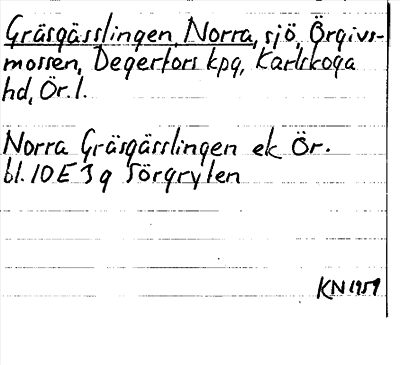 Gräsgässlingen, Norra, sjö, Örgivs-
mossen, Degerfors kpg, Karlskoga
hd, Ör. l.
Norra Gräsgässlingen ek Ör.
bl. 10E 3g Sörgryten
KN 1951